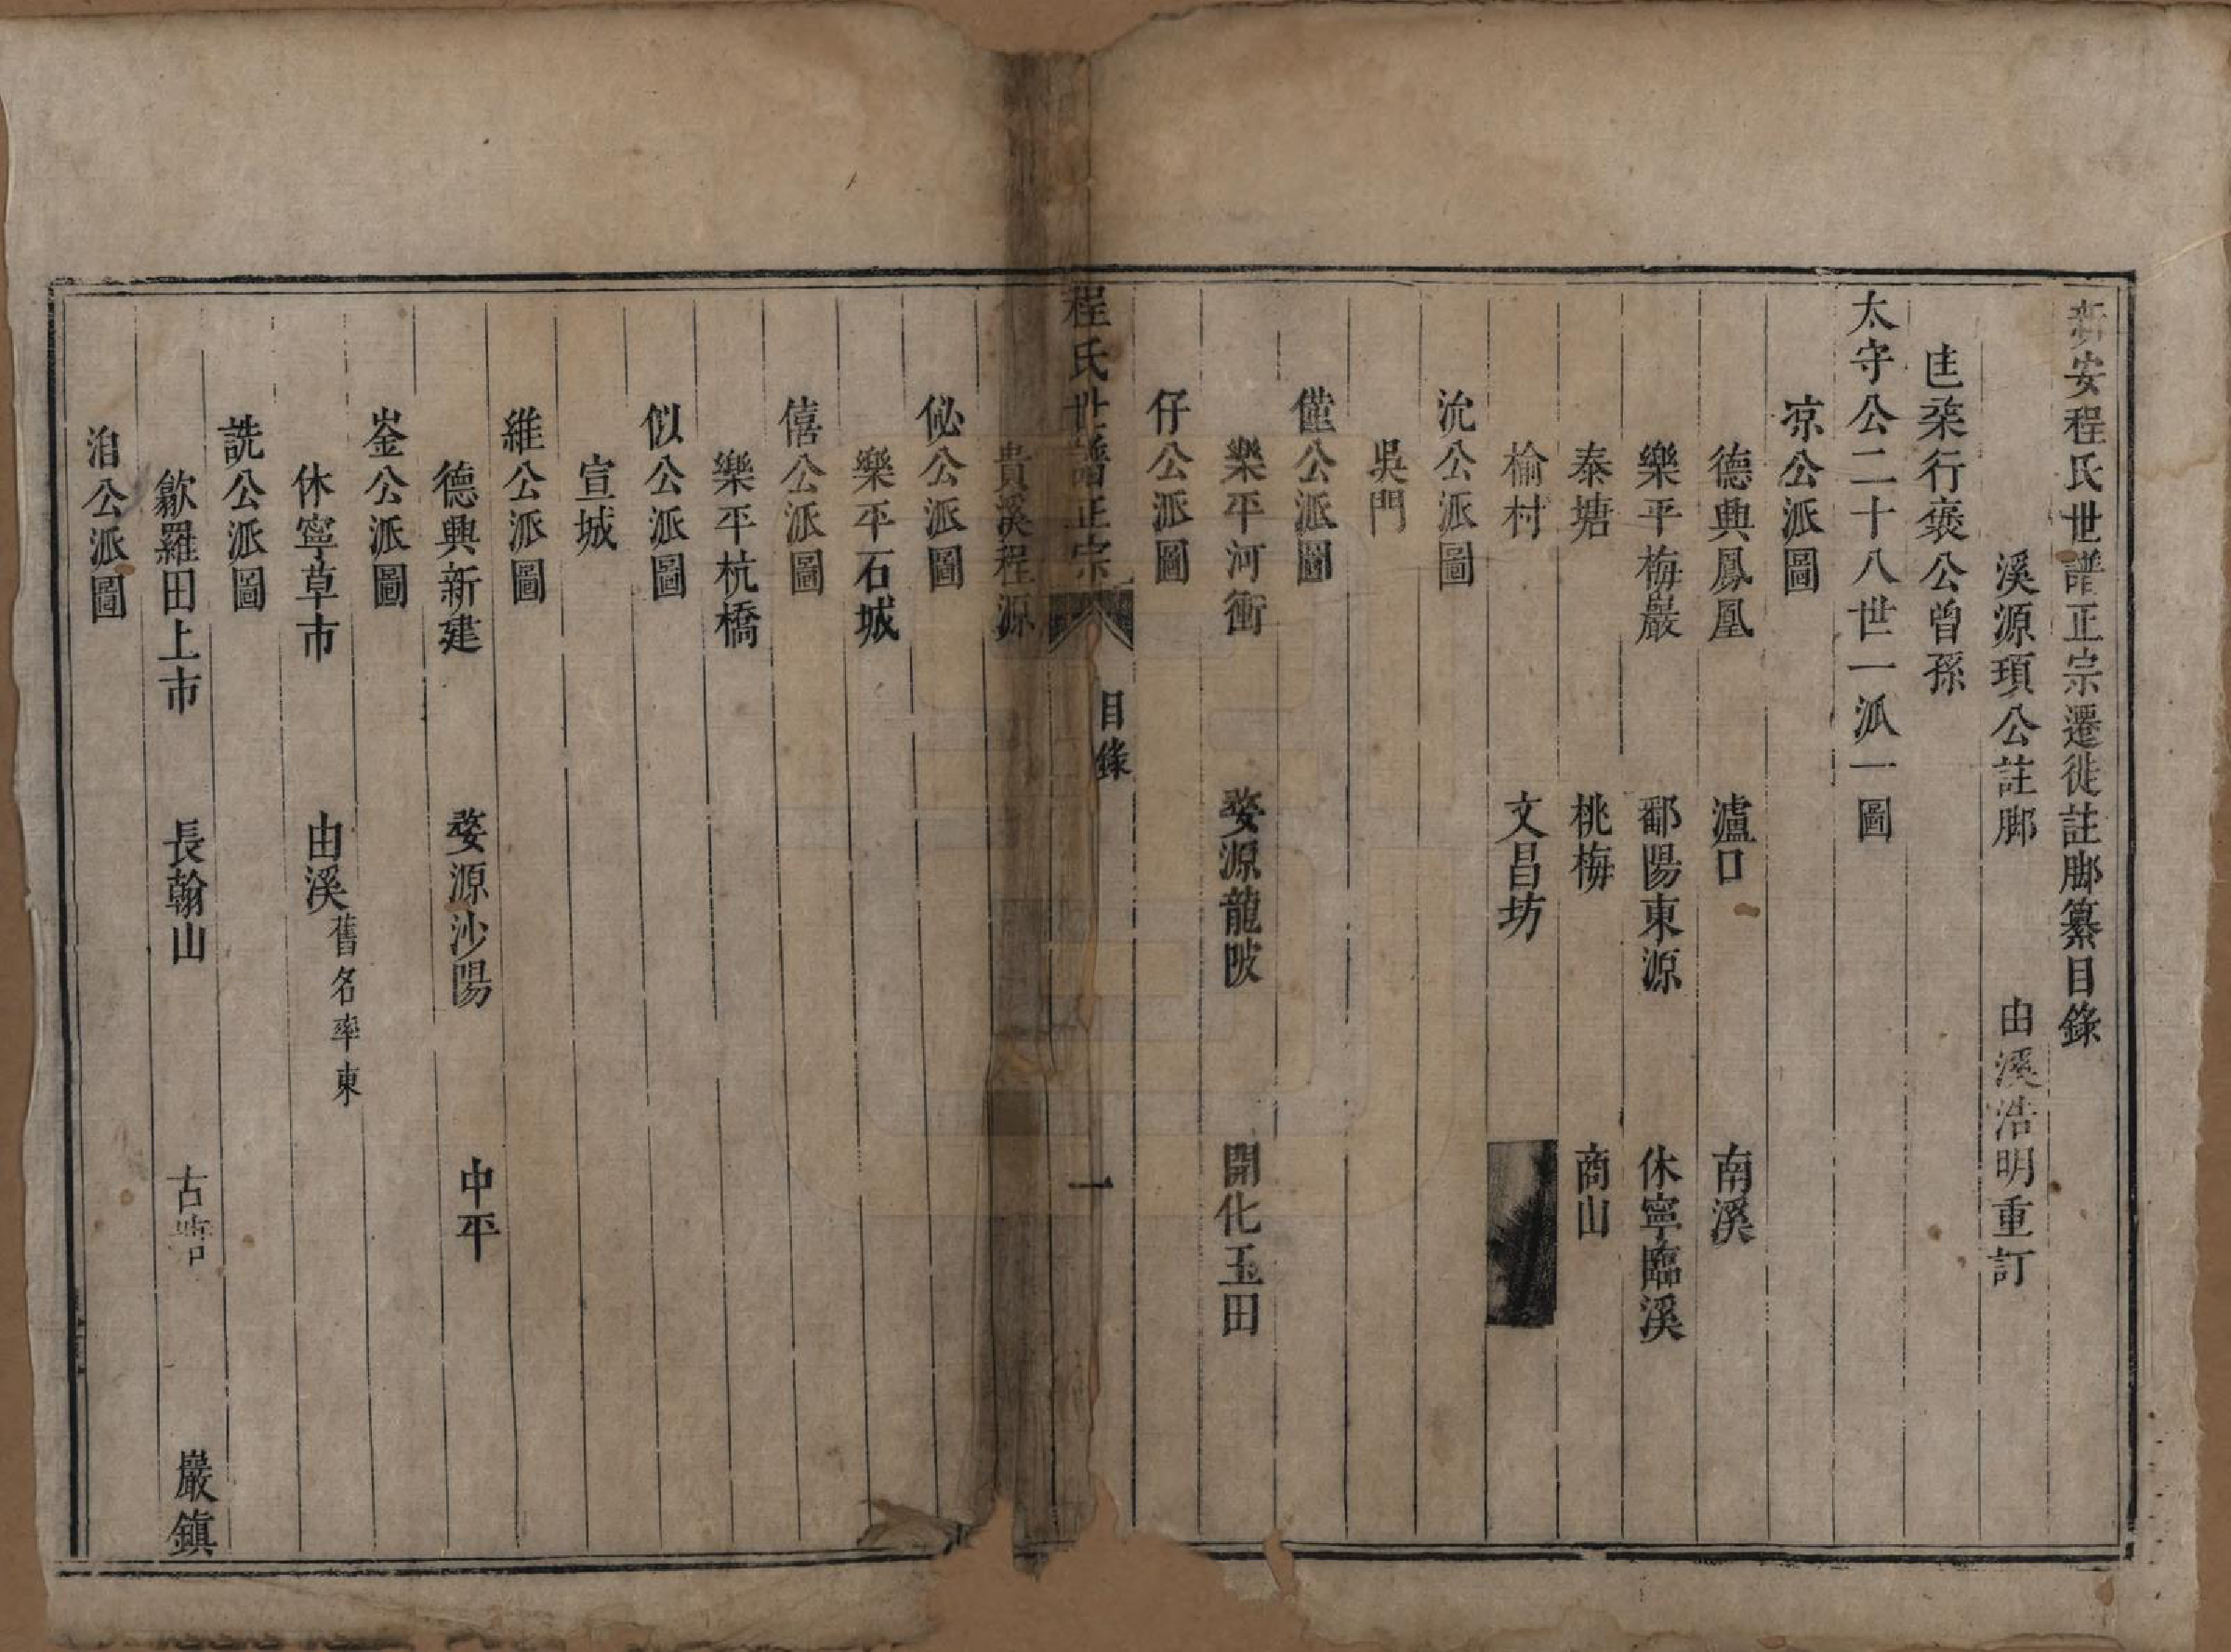 新安程氏世譜正宗遷徙註脚纂目錄
溪源項公註脚　由溪浩明重訂
行褎公曾孫
太守公二十八世一派一圖
凉公派圖
德興鳳凰　瀘口　南溪
樂平梅巖　鄱陽東源　休寧臨溪
泰塘　桃梅　商山
榆村　文昌坊
沇公派圖
吳門
僅公派圖
樂平河衝　婺源龍陂　開化玉田
仔公派圖
程氏世譜正宗　目錄　一
貴溪程源
佖公派圖
樂平石城
僖公派圖
樂平杭橋
似公派圖
宣城
維公派圖
德興新建　婺源沙陽　中平
崟公派圖
休寧草市　由溪舊名率東
詵公派圖
歙羅田上市　長翰山　古　巖鎮
洎公派圖